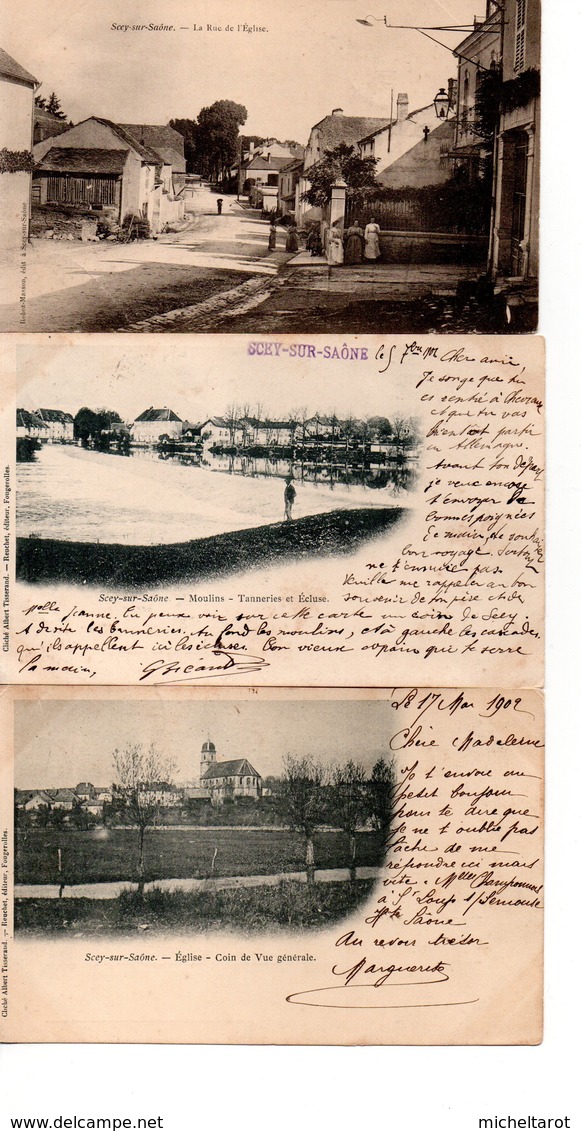 Scey-sur-Saône. — La Rue de l'Église.
Robez-Masson, édit. à Scey-sur-Saône
SCEY-SUR-SAÔNE
le 5 7bre 
Cher ami,
Je songe que tu
es rentré à
et que tu vas
bientôt partir
en Allemagne.
Avant ton départ
je veux encore
t'envoyer de
bonnes poignées
de main, te souhaiter
bon voyage. Surtout
ne t'ennuie pas
Veuille me rappeler au bon
souvenir de ton père et de
Cliché Albert Tisserand. — Reuchet, éditeur, Fougerolles.
Scey-sur-Saône — Moulins - Tanneries et Écluse.
Melle Jeanne. Tu peux voir sur cette carte un coin de Scey
A droite les tanneries, Au fond les moulins, et à gauche les cascades
qu'ils appellent ici les écluses. Ton vieux copain que te serre
la main,
Le 17 Mai 1902
Chère Madeleine
Je t'envoie un
petit bonjour
pour te dire que
je ne t'oublie pas
tâche de me
répondre ici mais
vite. Melle
à St Loup s/Semouse
Hte Saône
Au revoir trésor
Marguerite
Cliché Albert Tisserand. — Reuchet, éditeur, Fougerolles.
Scey-sur-Saône. — Église - Coin de Vue générale.
Delcampe.net
micheltarot